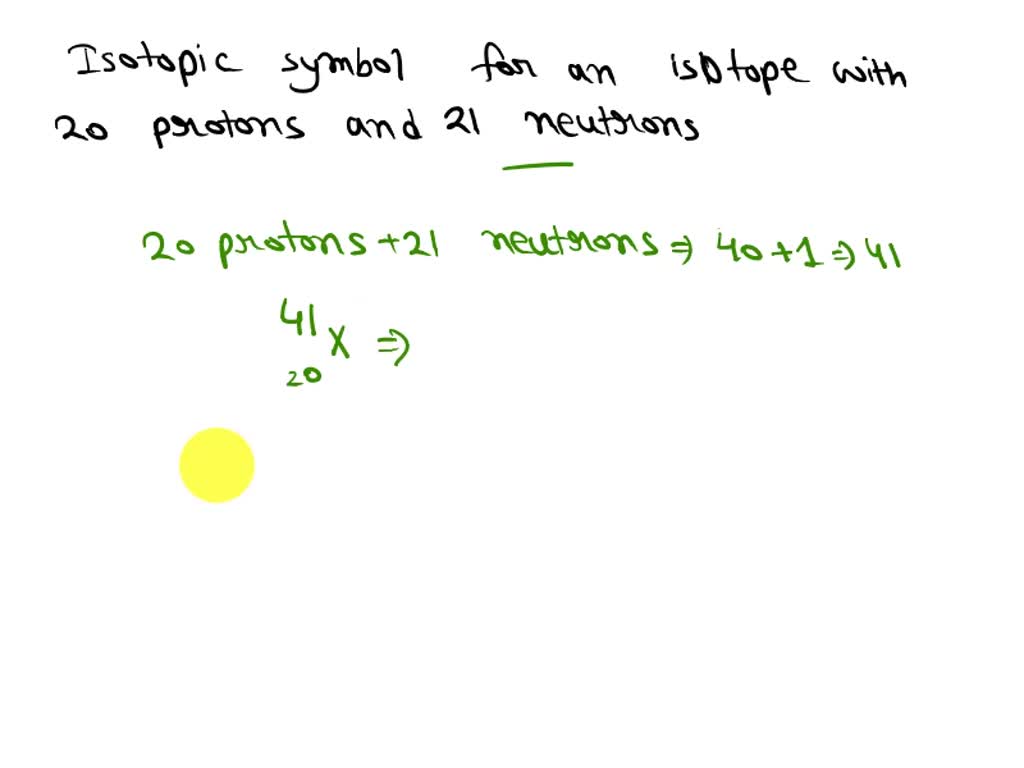 Isotopic symbol for an isotope with
20 protons and 21 neutrons
20 protons + 21 neutrons ⇒ 40 + 1 ⇒ 41
41
X ⇒
20